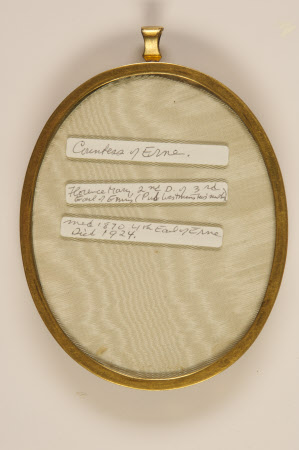 Countess of Erne.
Florence Mary 2nd D. of 3rd
Earl of
med 1870 4th Earl of Erne
Died 1924.